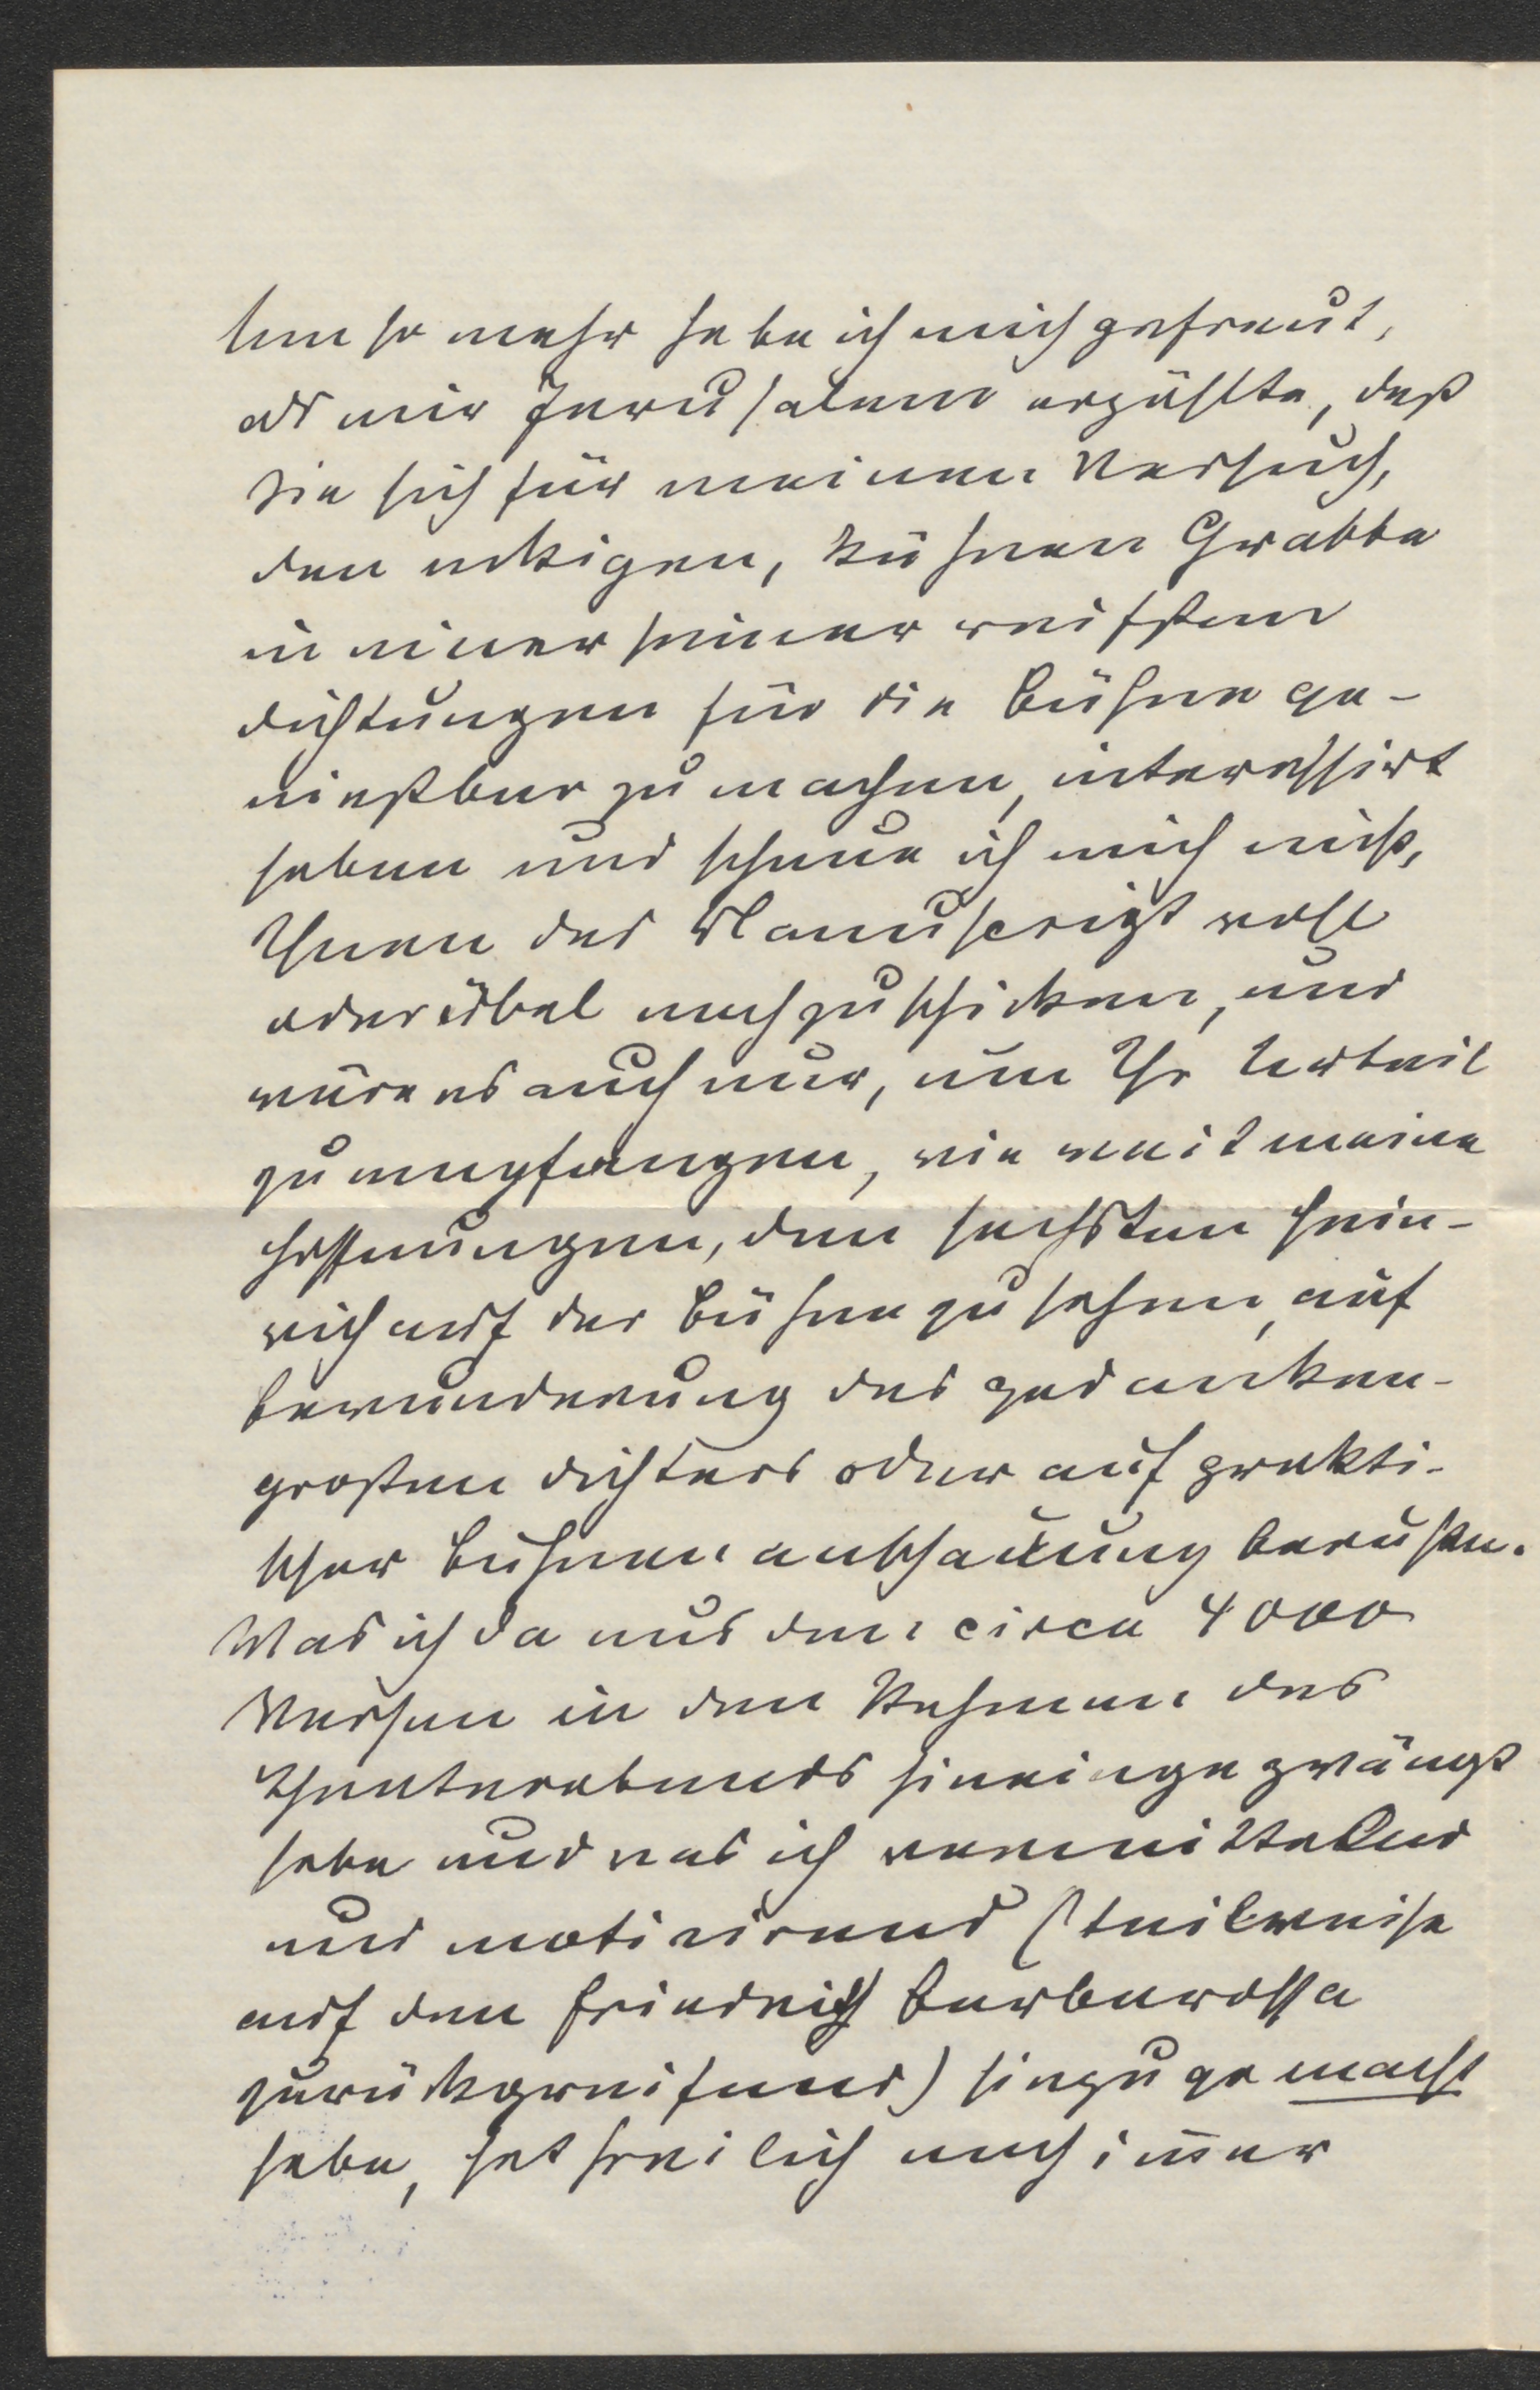 Um so mehr habe ich mich gefreut,
als mir Jerusalem erzählte, daß
Sie sich für meinen Versuch,
den eckigen, kühnen Grabbe
in einer seiner reifsten
Dichtungen für die Bühne ge-
nießbar zu machen, interessirt
haben und scheue ich mich nicht,
Ihnen das Manuscript wohl
oder übel nachzuschicken, und
wäre es auch nur, um Ihr Urteil
zu empfangen, wie weit meine
Hoffnungen, den sechsten Hein-
rich auf der Bühne zu sehen, auf
Bewunderung des gedanken-
großen Dichters oder auf prakti-
scher Bühnenanschauung beruhen.
Was ich da aus den circa 4000
Versen in den Rahmen des
Theaterabends hineingezwängt
habe und was ich vermittelnd
und motivirend (teilweise
auf den Friedrich Barbarossa
zurückgreifend) hinzugemacht
habe, hat freilich noch immer